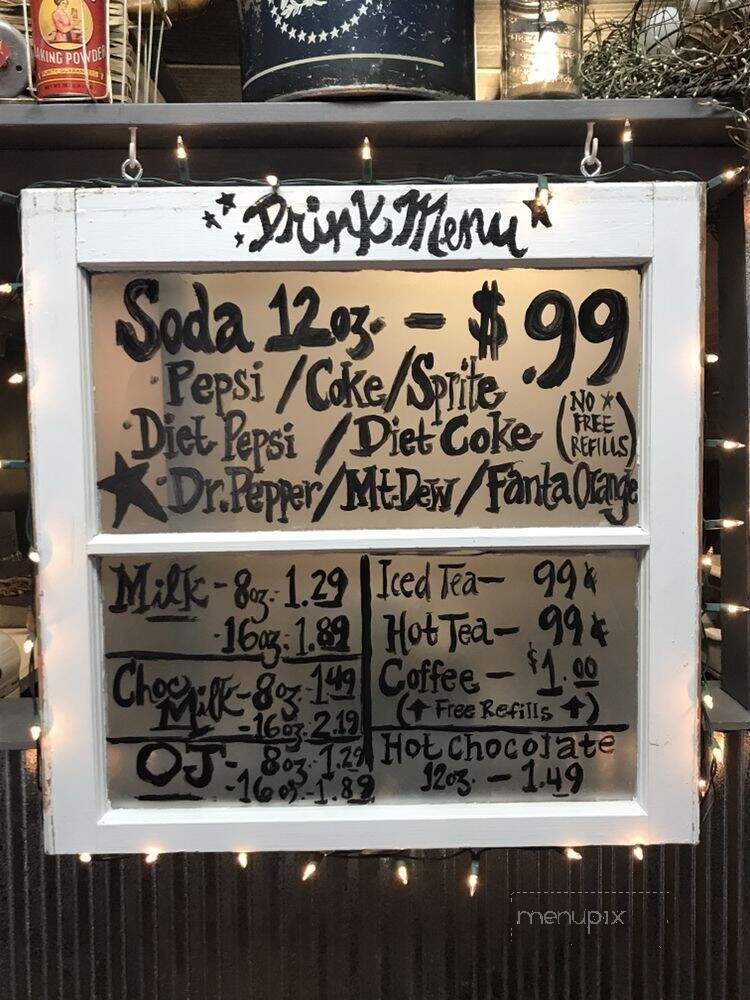 BAKING POWDER
Drink Menu
Soda 12oz. - $.99
Pepsi / Coke / Sprite
Diet Pepsi / Diet Coke
(NO FREE REFILLS)
Dr. Pepper / Mt. Dew / Fanta Orange
Milk - 8oz. 1.29
- 16oz. 1.89
Choc Milk - 8oz. 1.49
- 16oz. 2.19
OJ - 8oz. 1.29
- 16oz. - 1.89
Iced Tea - 99¢
Hot Tea - 99¢
Coffee - $1.00
(↑ Free Refills ↑)
Hot Chocolate
12oz. - 1.49
menupix